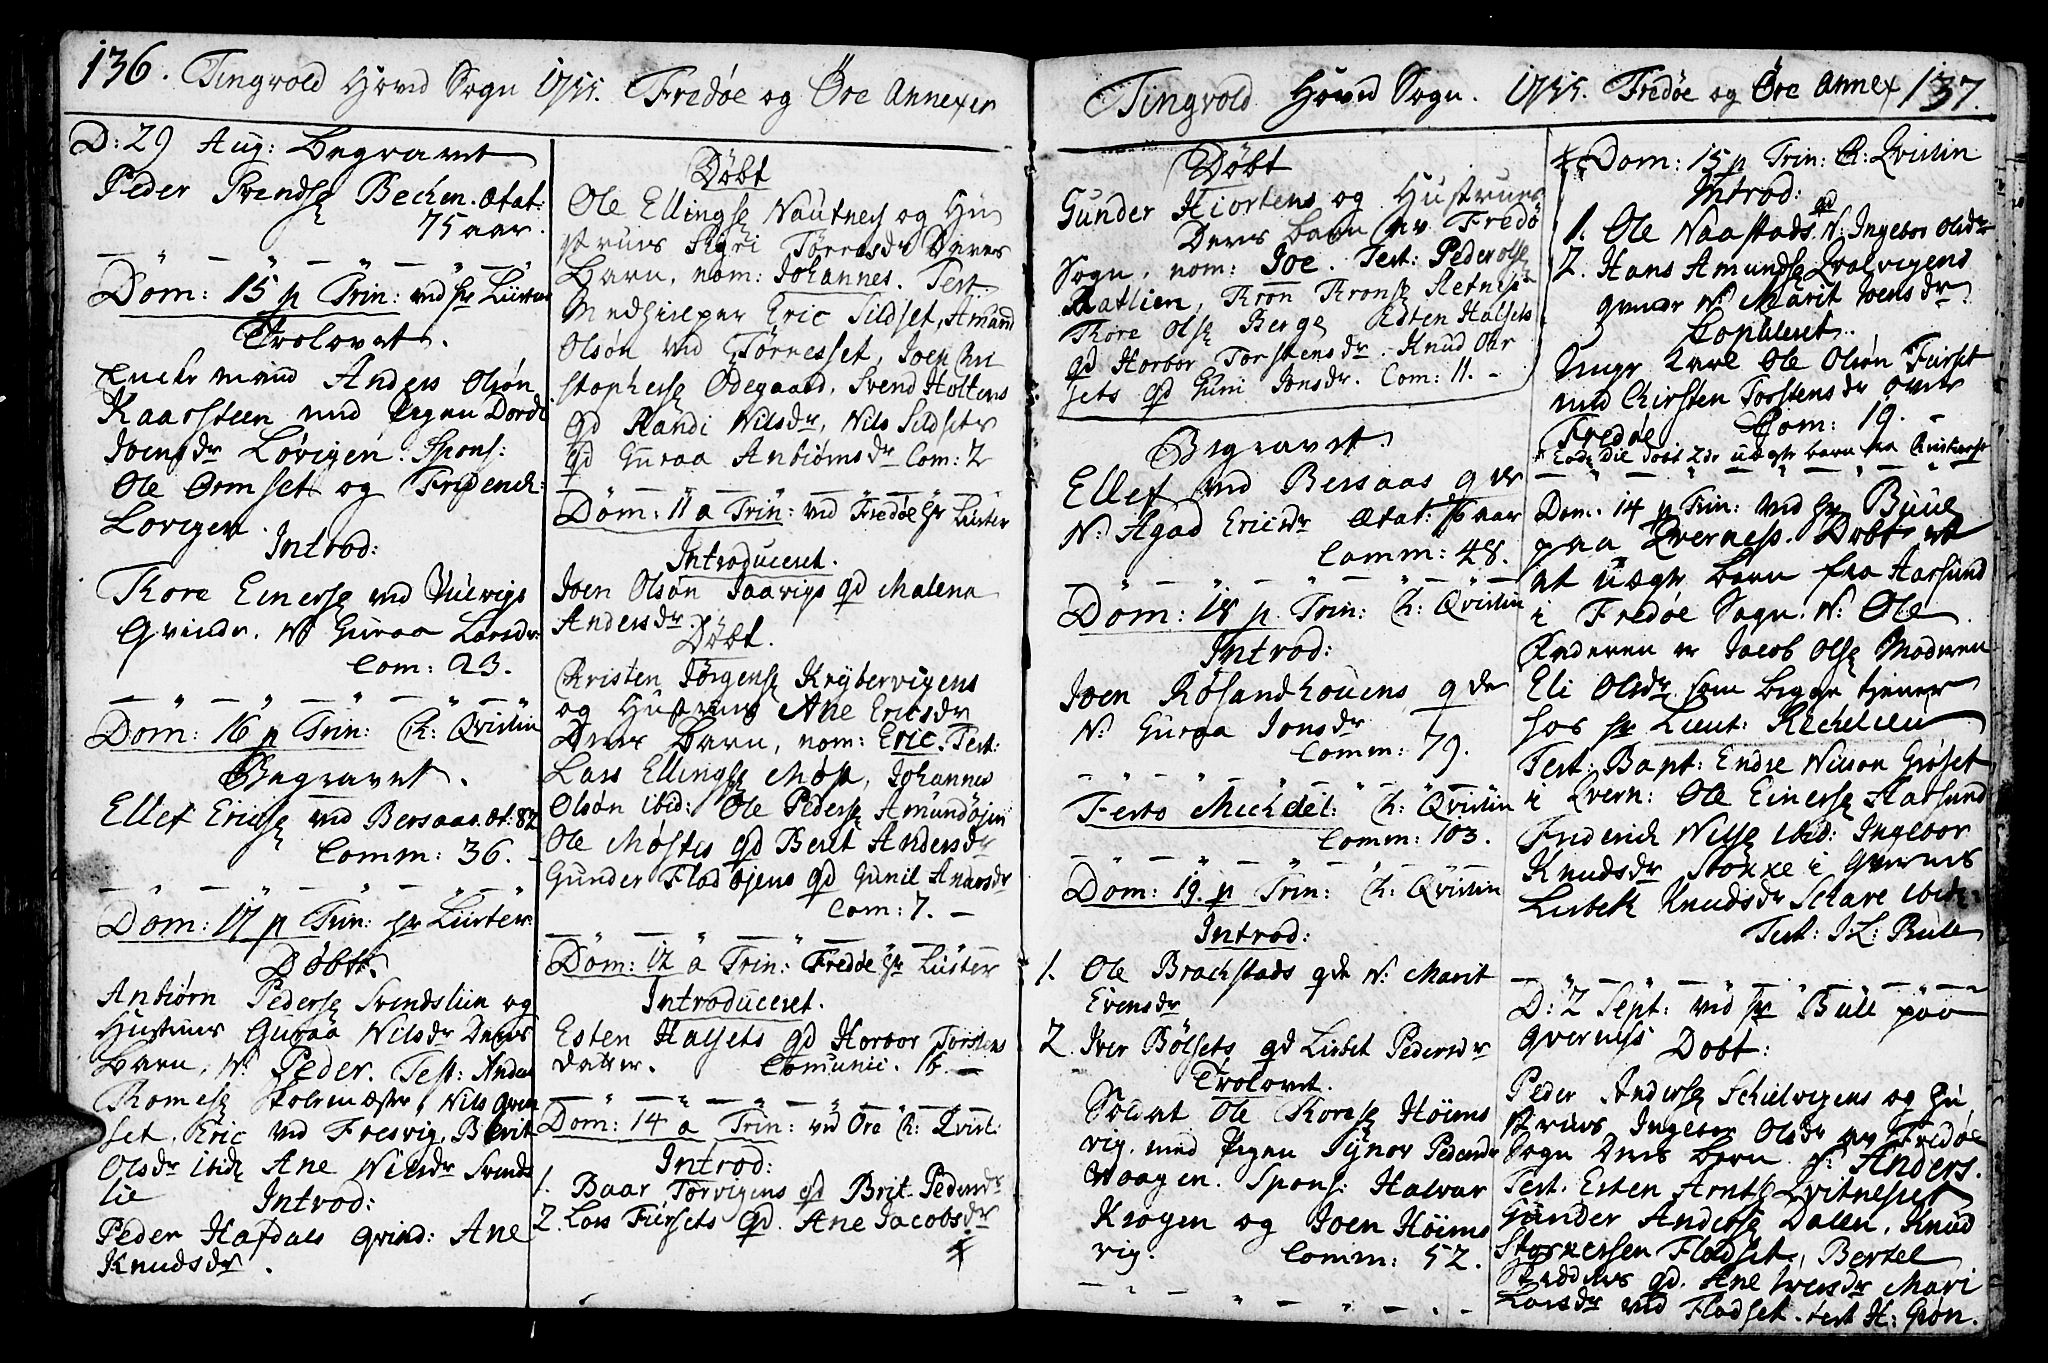 136. Tingvold Hovd Sogn 1755. Fredøe og Öre Annexer
D: 29 Aug: Begravet
Peder Svendsø Bechen. Ætat:
75 aar.
Dom: 15 p Trin: ved hr Lüster
Trolovet.
Enche mand Anders Olsøn
Kaarsteen med Pigen Dordi
Joensdr Løvigen. Spons:
Ole Ormset og Friderich
Lovigen.
Introd:
Tore Einersø ved Julvigs
Qvinde. N: Guraa Larsdr
Com: 23.
Dom: 16 p Trin: Ch: Qvistin
Begravet.
Ellef Ericsø ved Bersaas. æt: 82
Comm: 36.
Dom: 17 p Trin: hr Lüster
Döbt.
Anbiørn Pedersø Svindsliin og
Hustrues Guraa Nilsdr Deres
Barn, N: Peder. Test: Anders
Romesø Skolemester, Nils
set. Eric ved Foesvig, Berit
Olsdr ibid Ane Nilsdr Svinds
lie Introd:
Peder Hafdals Qvind: Ane
Knudsdr.
Döbt
Ole Ellingsø Nautnes og Hu
strues Sigri Torresdr Deres
Barn, nom: Johannes. Test
Medhielper Eric Sildset, Amund
Olsøn ved Törnesset, Joen Chri
stophersø Ödegaard, Svend Holtens
qd Randi Nilsdr, Nils Sildsets
qd Guraa Anbiørnsdr Com: 2
Dom: 11 a Trin: ved Fredøe hr Lüster
Introduceret.
Joen Olsøn Jaarigs qd Malena
Andersdr.
Döbt.
Christen Jørgensø Krÿbervigens
og Hustrues Ane Ericsdr
Deres Barn, nom: Eric. Test:
Lars Ellingsø Møst, Johannes
Olsøn ibid: Ole Pedersø Amundøjen
Ole Møstes qd Beret Andersdr
Gunder Fladøjens qd Gunil Andersdr
Com: 7.
Dom: 12 a Trin: Fredøe hr Lüster
Introduceret.
Esten Halsets qd Horbor Torstens
datter. Comunic. 16.
Dom: 14 a Trin: ved Øre Ch: Qvist:
Introd:
1. Baar Torvigens qd Brit Pedersdr
2. Lars Fiersets qd. Ane Jacobsdr
Tingvold Hovd Sogn. 1755. Fredøe og Øre Annex 137.
Döbt
Gunder Hiortens og Hustrues
Deres Barn av Fredö
Sogn, nom: Joe. Test: Peder Olsø
Ratlien, Kron Kronsø
Tore Olsø Berge Esten Halsets
qd Horbor Torstensdr. Knud Ohr
sets qd Guni Jonsdr. Com: 11.
Begravet.
Ellef ved Bersaas qde
N: Agad Ericsdr Ætat: aar
Comm: 48.
Dom: 18 p. Trin: Ch: Qvistin
Introd:
Joen Røsandhouens qde
N: Guraa Jonsdr
Comm: 79.
Festo Michäel: Ch: Qvistin
Comm: 103.
Dom: 19. p Trin: Ch: Qvistin
Introd:
1. Ole Brachstads qde N: Marit
Evensdr
2. Iver Bölsets qd Lisbet Pedersdr
Trolovet.
Soldat Ole Toresø Höims
vig. med Pigen Synor Pedersdr
Waagen. Spons: Halvar
Krogen og Joen Höims
vig. Comm: 52.
Dom: 15 p Trin: Ch: Qvistin
Introd:
1. Ole Naastads qd N: Ingebor Olsdr
2. Hans Amundsø Qvalvigens
Qvinde N: Marit Joensdr
Copuleret.
Unge Karl Ole Olsøn Fierset
med Kirsten Torstensdr
Fredøe Com: 19.
Dom: 14 p Trin: ved hr Buul
paa Qverness. Dobt et
at uægte barn fra Aarsund
i Fredøe Sogn. N: Ole
Faderen er Jacob Olsø Moderen
Eli Olsdr som begge tiener
hos hr Lieut: Richelieu
Test: Bapt: Endre Nilsøn Gröset
i Qvern: Ole Einersø Aarsund
Friderich Nilsø ibid: Ingebor
Knudsdr Stokke i Qvernes
Lisbeth Knudsdr Schare ibid:
Test: J: L: Bule
D: 2 Sept: ved hr Bull paa
Qverness Dobt:
Peder Andersø Schielvigens og Hu
strues Ingebor Olsdr av Fredøe
Sogn Deres barn N: Anders.
Test. Esten Arntsø Qvitneset
Gunder Andersø Dalen, Knud
Flodset, Bertel
qd. Ane Iversdr Mari
Larsdr ved Flodset. test H: Grøn.